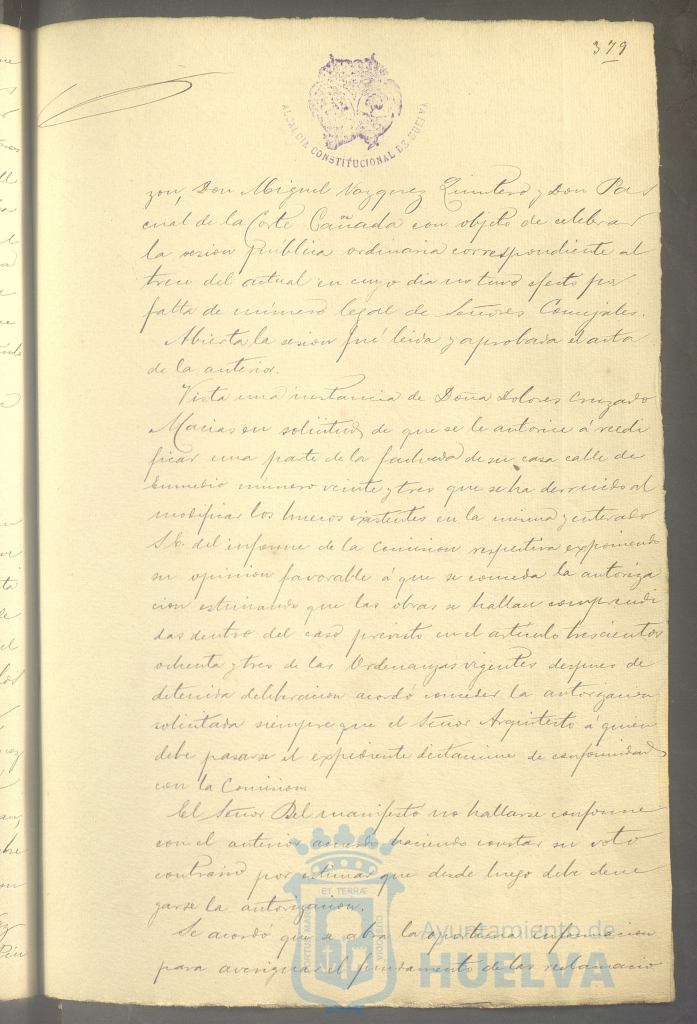 379
ALCALDIA CONSTITUCIONAL DE HUELVA
zon, Don Miguel Vazquez Quintero y Don Pas
cual de la Corte Cañada con objeto de celebrar
la sesion pública ordinaria correspondiente al
trece del actual en cuyo dia no tuvo efecto por
falta de número legal de Señores Concejales.
Abierta la sesion fué leida y aprobada el acta
de la anterior.
Vista una instancia de Doña Dolores Cruzado
Macias en solicitud de que se le autorice á reedi
ficar una parte de la fachada de su casa calle de
Enmedio número veinte y tres que se ha derruido al
modificar los huecos existentes en la misma y enterado
S.E. del informe de la Comision respectiva exponiendo
su opinion favorable á que se conceda la autoriza
cion estimando que las obras se hallan comprendi
das dentro del caso previsto en el artículo trescientos
ochenta y tres de las Ordenanzas vigentes despues de
detenida deliberacion acordó conceder la autorizacion
solicitada siempre que el Señor Arquitecto á quien
debe pasarse el expediente dictamine de conformidad
con la Comision
El Señor Bel manifestó no hallarse conforme
con el anterior acuerdo haciendo constar su voto
contrario por estimar que desde luego debe dene
garse la autorizacion.
Se acordó que se abra la oportuna informacion
para averiguar el fundamento de las reclamacio
PORTUS MARIS ET TERRÆ CUSTODIA
Ayuntamiento de
HUELVA